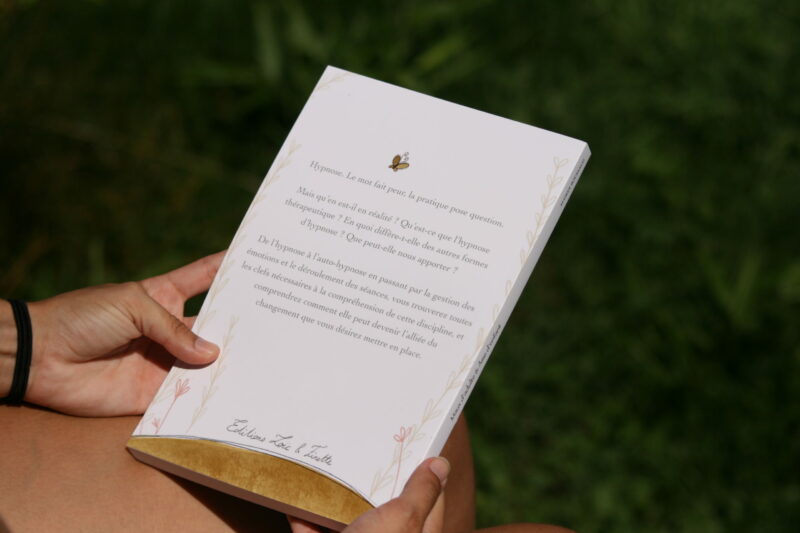 Hypnose. Le mot fait peur, la pratique pose question.
Mais qu'en est-il en réalité ? Qu'est-ce que l'hypnose
thérapeutique ? En quoi diffère-t-elle des autres formes
d'hypnose ? Que peut-elle nous apporter ?
De l'hypnose à l'auto-hypnose en passant par la gestion des
émotions et le déroulement des séances, vous trouverez toutes
les clefs nécessaires à la compréhension de cette discipline, et
comprendrez comment elle peut devenir l'alliée du
changement que vous désirez mettre en place.
Editions Zoé &